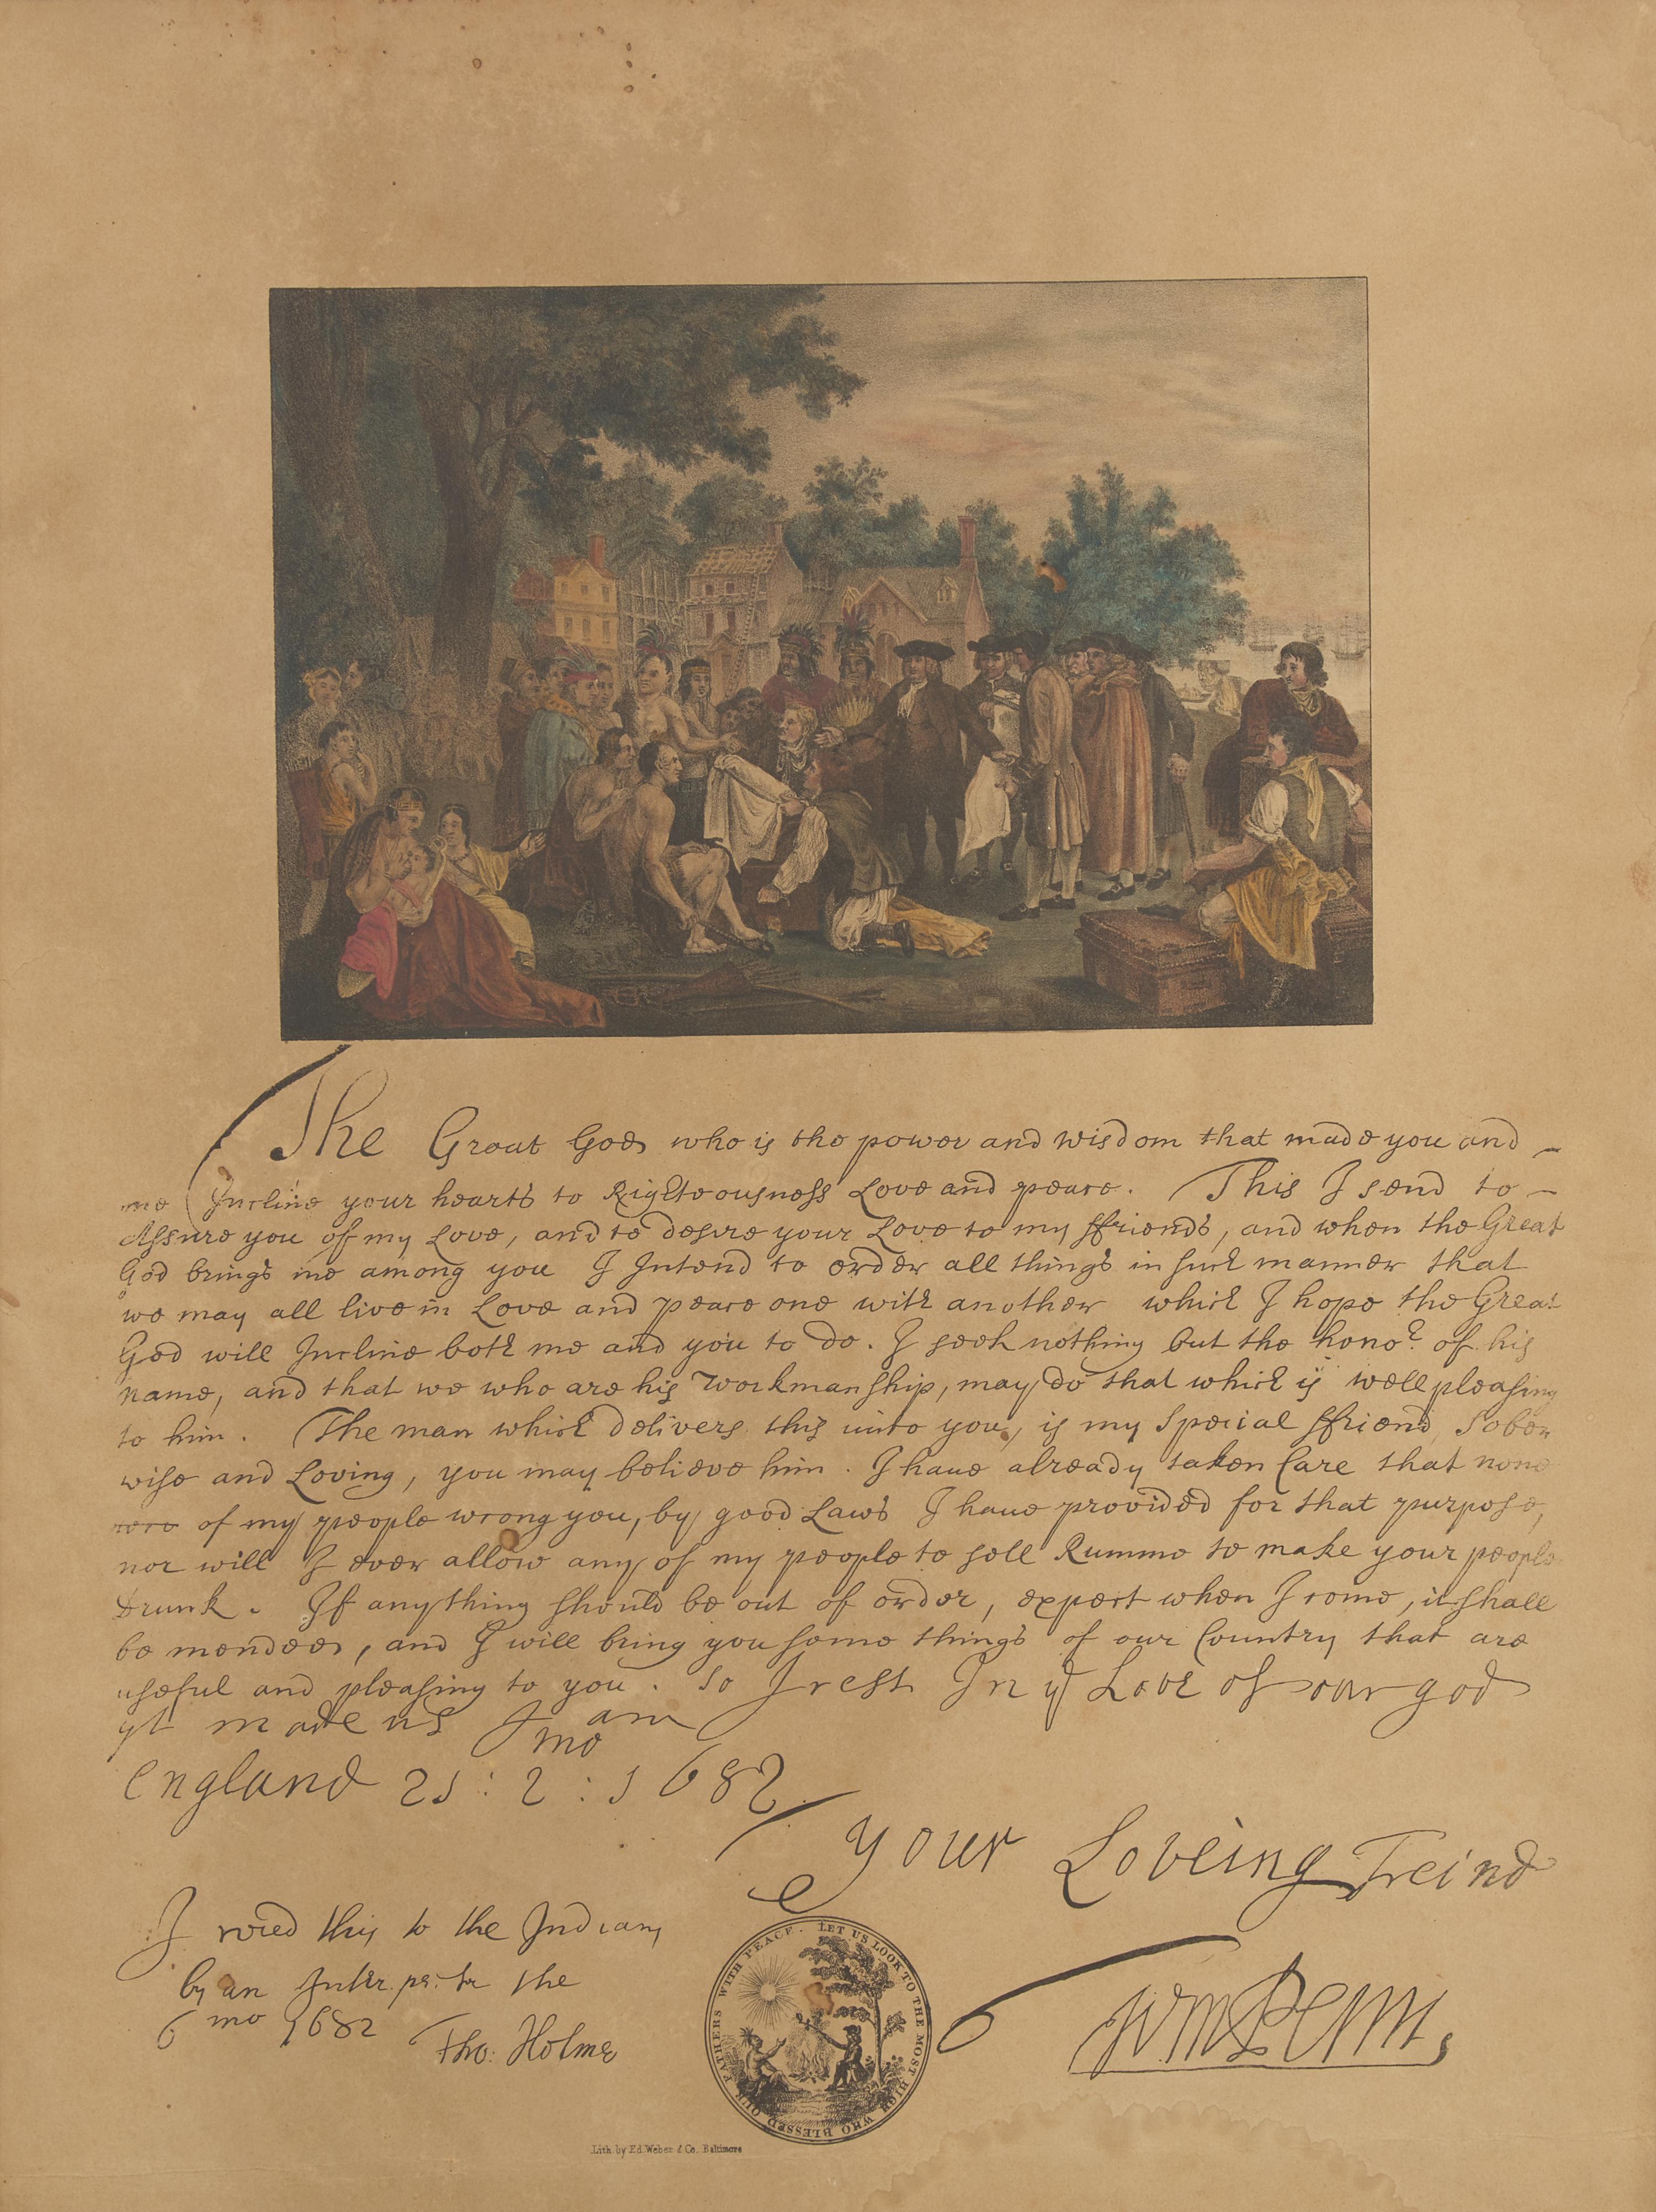 The Great God who is the power and wisdom that made you and
me Incline your hearts to Righteousness Love and peace. This I send to
Assure you of my Love, and to desire your Love to my ffriends, and when the Great
God brings me among you I Intend to order all things in such manner that
we may all live in Love and peace one with another which I hope the Great
God will Incline both me and you to do. I seek nothing but the hono.r of his
name, and that we who are his Workmanship, may do that which is well pleasing
to him. The man which delivers this unto you, is my Special ffriend Sober
wise and Loving, you may believe him. I have already taken Care that none
of my people wrong you, by good Laws I have provided for that purpose,
nor will I ever allow any of my people to sell Rumme to make your people
Drunk. If any thing should be out of order, expect when I come, it shall
be mended, and I will bring you some things of our Country that are
useful and pleasing to you. So I rest In ye Love of our god
yt made us I am
England 21: 2 mo: 1682
your Loveing Freind
I read this to the Indians
by an Interpreter the
6 mo 1682 Tho: Holme
Wm Penn
LET US LOOK TO THE MOST HIGH WHO BLESSED OUR FATHERS WITH PEACE.
Lith. by Ed. Weber & Co. Baltimore